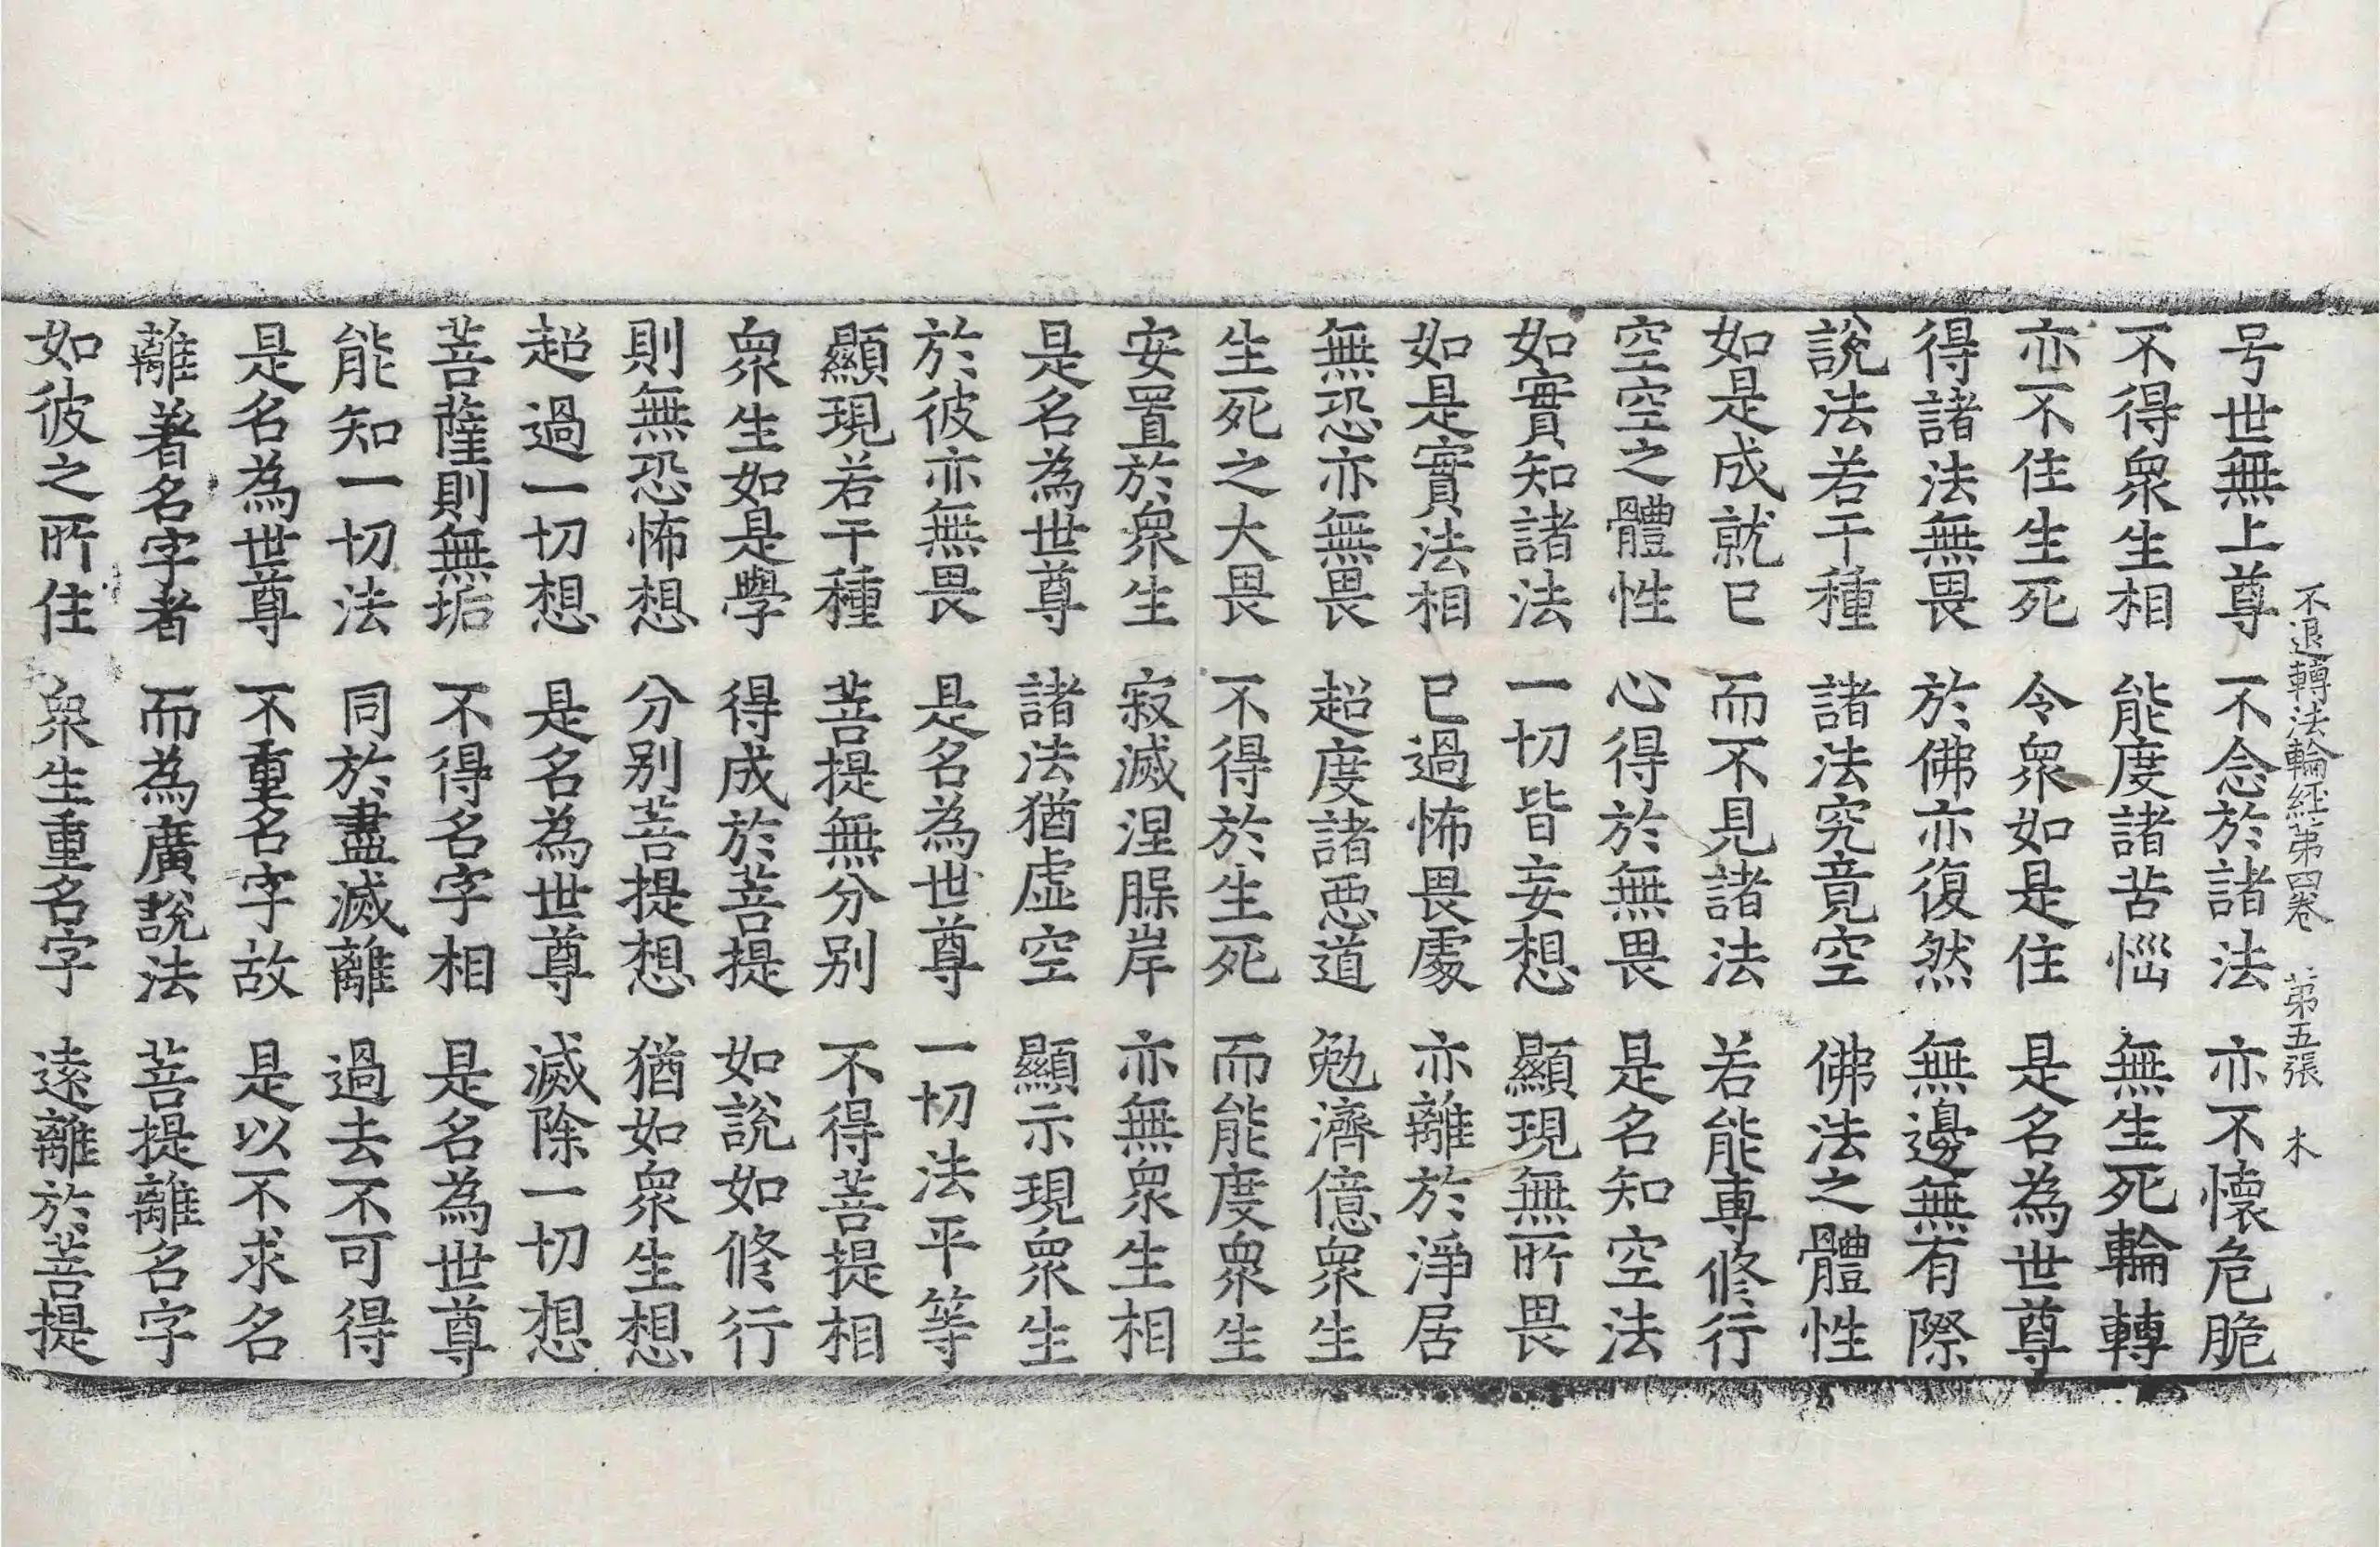 不退轉法輪經第四卷　第五張　木
号世無上尊　不念於諸法　亦不懷危脆
不得衆生相　能度諸苦惱　無生死輪轉
亦不住生死　令衆如是住　是名為世尊
得諸法無畏　於佛亦復然　無邊無有際
說法若干種　諸法究竟空　佛法之體性
如是成就已　而不見諸法　若能專修行
空空之體性　心得於無畏　是名知空法
如實知諸法　一切皆妄想　顯現無所畏
如是實法相　已過怖畏處　亦離於淨居
無恐亦無畏　超度諸惡道　勉濟億衆生
生死之大畏　不得於生死　而能度衆生
安置於衆生　寂滅涅槃岸　亦無衆生相
是名為世尊　諸法猶虛空　顯示現衆生
於彼亦無畏　是名為世尊　一切法平等
顯現若干種　菩提無分别　不得菩提相
衆生如是學　得成於菩提　如說如修行
則無恐怖想　分别菩提想　猶如衆生想
超過一切想　是名為世尊　滅除一切想
菩薩則無垢　不得名字相　是名為世尊
能知一切法　同於盡滅離　過去不可得
是名為世尊　不重名字故　是以不求名
離著名字者　而為廣說法　菩提離名字
如彼之所住　衆生重名字　遠離於菩提